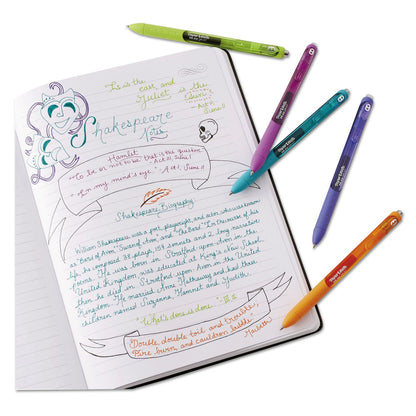 'Tis is the
east and
Juliet is the
sun!
-Act II,
Scene II
Shakespeare
Notes
Hamlet
"To be or not to be that is the question"
-Act III, Scene I
"In my mind's eye." Act I Scene II
Shakespeare Biography
William Shakespeare was a poet, playwright, and actor who was known
as "Bard of Avon," "Swan of Avon," and "The Bard." In the course of his
life, he composed 38 plays, 154 sonnets and 2 long narrative
poems. He was born in Stratford upon Avon in the
United Kingdom, was educated at King's New School,
then he died in Stratford upon Avon in the United
Kingdom. He married Anne Hathaway and had three
children named Suzanna, Hamnet and Judith.
"What's done is done." III.II
"Double, double toil and trouble,
Fire burn, and cauldron bubble"
Macbeth